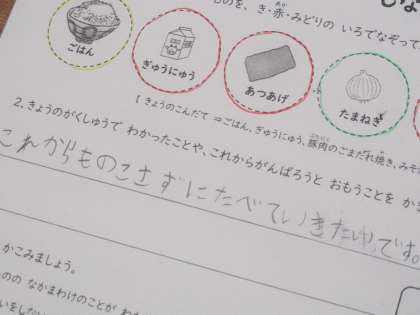 ものを、き・赤・みどりの いろでなぞって
ごはん
ぎゅうにゅう
あつあげ
たまねぎ
【きょうのこんだて ⇒ごはん、ぎゅうにゅう、豚肉のごまだれ焼き、みそ
2. きょうのがくしゅうで わかったことや、これからがんばろうと おもうことを かき
これからものこさずにたべていきたいです。
かこみましょう。
のの なかまわけのことが わか
いをしない